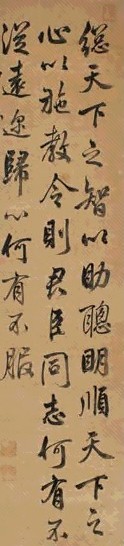 総天下之智以助聰明順天下之
心以施教令則君臣同志何有不
從遠近歸心何有不服